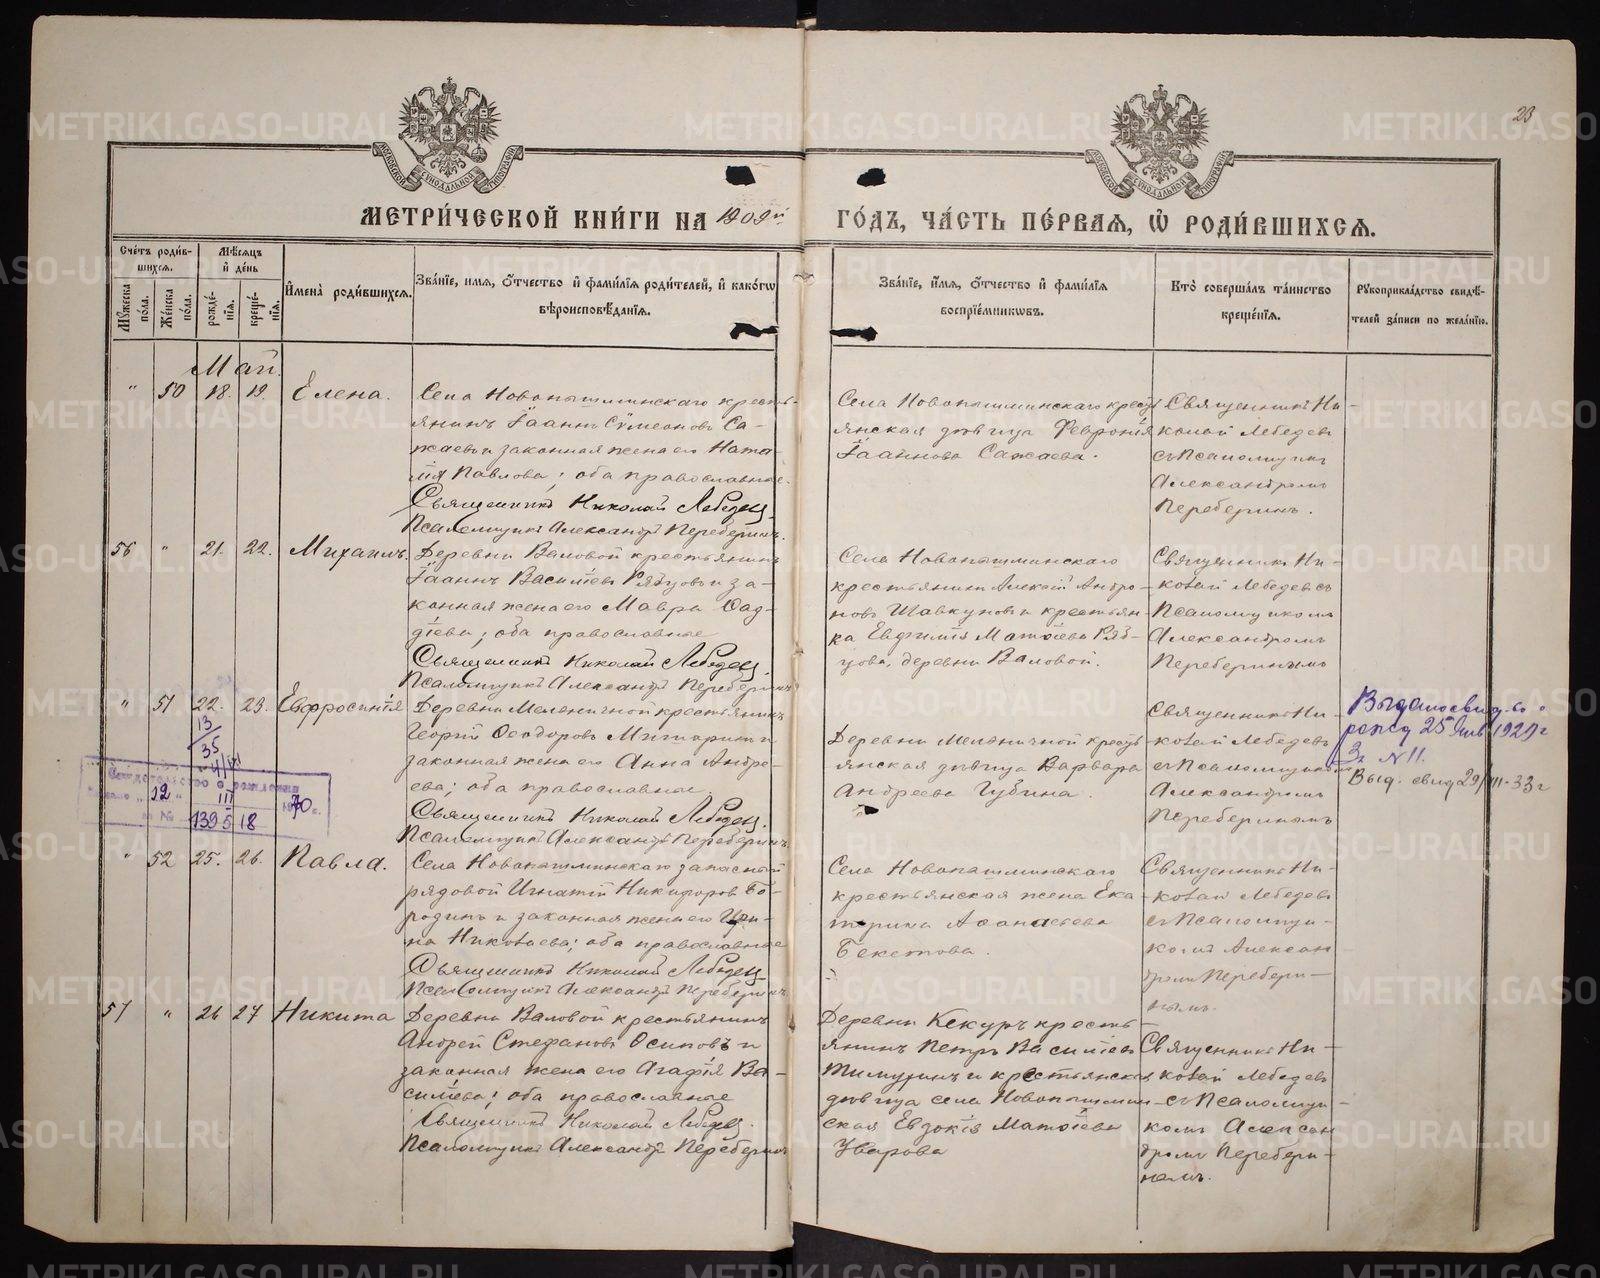 23
МОСКОВСКОЙ СѴНОДАЛЬНОЙ ТИПОГРАФІИ
МОСКОВСКОЙ СѴНОДАЛЬНОЙ ТИПОГРАФІИ
МЕТРИ́ЧЕСКОЙ КНИ́ГИ НА 1909й
ГО́ДЪ, ЧА́СТЬ ПЕ́РВАЯ, Ѡ҆ РОДИ́ВШИХСЯ.
Сче́тъ роди́в-
шихся.
Му́жеска по́ла.
Же́нска по́ла.
Мѣ́сяцъ
и҆ де́нь
рожде́-
нїя.
креще́-
нїя.
И҆мена̀ роди́вшихся.
Зва́нїе, и҆мя, ѻ҆́тчество и҆ фами́лїя роди́телей, и҆ како́гѡ
вѣроисповѣ́данїя.
Зва́нїе, и҆́мя, ѻ҆́тчество и҆ фами́лїя
воспрїе́мникѡвъ.
Кто̀ соверша́лъ та́инство
креще́нїя.
Рꙋкоприкла́дство свидѣ́-
телей за́писи по жела́нїю.
Май.
" 50 18. 19. Елена.
Села Новопышминскаго кресть-
янинъ Іоаннъ Сѵмеоновъ Са-
жаевъ и законная жена его Ната-
лія Павлова; оба православные.
Священникъ Николай Лебедевъ.
Псаломщикъ Александръ Переберинъ.
Села Новопышминскаго кресть-
янская дѣвица Февронія
Іоаннова Сажаева.
Священникъ Ни-
колай Лебедевъ
съ Псаломщикомъ
Александромъ
Переберинъ.
56 " 21. 22. Михаилъ.
Деревни Валовой крестьянинъ
Іоаннъ Василіевъ Рябцовъ и за-
конная жена его Мавра Ѳад-
діева; оба православные
Священникъ Николай Лебедевъ.
Псаломщикъ Александръ Переберинъ
Села Новопышминскаго
крестьянинъ Алексій Андро-
новъ Шавкуновъ и крестьян-
ка Евфимія Матѳіева Ряб-
цова, деревни Валовой.
Священникъ Ни-
колай Лебедевъ съ
Псаломщикомъ
Александромъ
Переберинымъ
" 51 22. 23. Евфросинія
Деревни Мельничной крестьянинъ
Георгій Ѳеодоровъ и
законная жена его Анна Андре-
ева; оба православные.
Священникъ Николай Лебедевъ.
Псаломщикъ Александръ Переберинъ
Деревни Мельничной кресть-
янская дѣвица Варвара
Андреева Губина.
Священникъ Ни-
колай Лебедевъ
съ Псаломщикомъ
Александромъ
Переберинымъ
Выдано свид-во о
рожд 25 Янв. 1929 г
За № 11.
Выд. свид 29/III-33 г
13
35
4/VI
Свидетельство о рождении
"12" III
№ 70
139518
" 52 25. 26. Павла.
Села Новопышминскаго запасный
рядовой Игнатій Никифоровъ Бо-
родинъ и законная жена его Ири-
на Николаева; оба православные
Священникъ Николай Лебедевъ
Псаломщикъ Александръ Переберинъ
Села Новопышминскаго
крестьянская жена Ека
терина Аѳанасьева
Бекетова.
Священникъ Ни-
колай Лебедевъ
съ Псаломщи-
комъ Алексан
дромъ Перебери-
нымъ.
57 " 26 27 Никита
Деревни Валовой крестьянинъ
Андрей Стефановъ Осиповъ и
законная жена его Агафія Ва-
силіева; оба православные
Священникъ Николай Лебедевъ.
Псаломщикъ Александръ Переберинъ
Деревни Кекуръ кресть-
янинъ Петръ Василіевъ
Тимуринъ и крестьянская
дѣвица села Новопышмин-
ская Евдокія Матѳіева
Уварова
Священникъ Ни-
колай Лебедевъ
съ Псаломщи-
комъ Алексан
дромъ Перебери-
нымъ.
METRIKI.GASO-URAL.RU